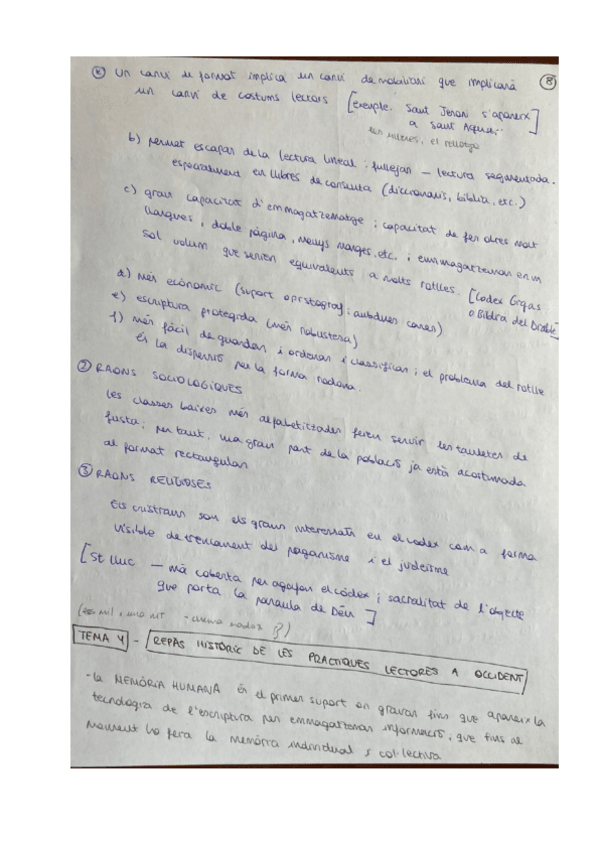 8
* Un canvi de format implica un canvi de mobiliari que implicarà
un canvi de costums lectors [Exemple: Sant Jeroni s'apareix
a Sant Agustí:
, el rellotge
b) permet escapar de la lectura lineal; fullejar — lectura segmentada.
especialment en llibres de consulta (diccionaris, bíblia, etc.)
c) gran capacitat d'emmagatzematge; capacitat de fer obres molt
llargues, doble pàgina, menys marges, etc. i emmagatzemar en un
sol volum que serien equivalents a molts rotlles. [Codex Gigas
o Bíblia del Diable]
d) més econòmic (suport opistògraf; ambdues cares)
e) escriptura protegida (més robustesa)
f) més fàcil de guardar i ordenar i classificar; el problema del rotlle
és la dispersió per la forma rodona.
② RAONS SOCIOLÒGIQUES
les classes baixes més alfabetitzades feren servir les tauletes de
fusta; per tant, una gran part de la població ja està acostumada
al format rectangular
③ RAONS RELIGIOSES
Els cristians son els grans interessats en el codex com a forma
visible de trencament del paganisme i el judeisme
[St Lluc — mà coberta per agafar el còdex; sacralitat de l'objecte
que porta la paraula de Déu]
TEMA 4 - REPÀS HISTÒRIC DE LES PRÀCTIQUES LECTORES A OCCIDENT
- La MEMÒRIA HUMANA és el primer suport on gravar fins que apareix la
tecnologia de l'escriptura per emmagatzemar informació, que fins al
moment ho feia la memòria individual i col·lectiva